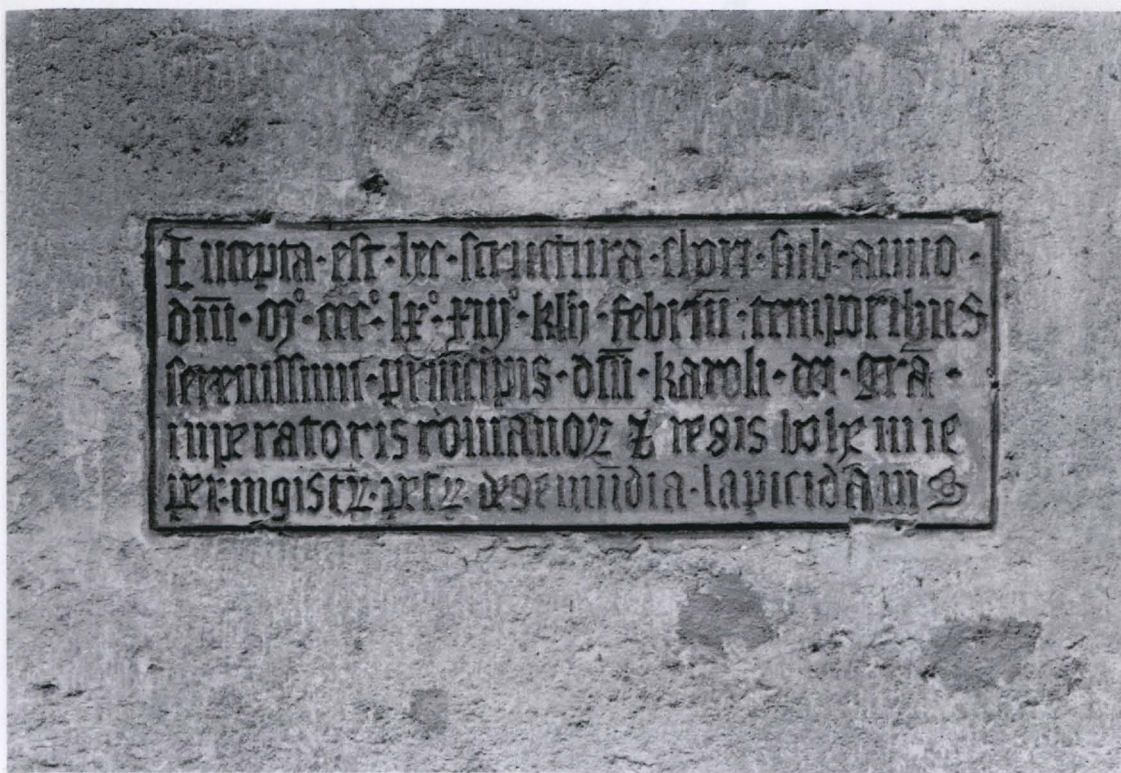 Incepta·est·hec·structura·chori·sub·anno·
dn̄i·mº·cccº·lxº·xiijº·kln̄·febr̄ii·temporibus
serenissimi·principis·dn̄i·karoli·dei·grā·
imperatoris romanoꝝ ⁊ regis bohemie
per·mgistꝝ·petꝝ·de gemūdia·lapicidam